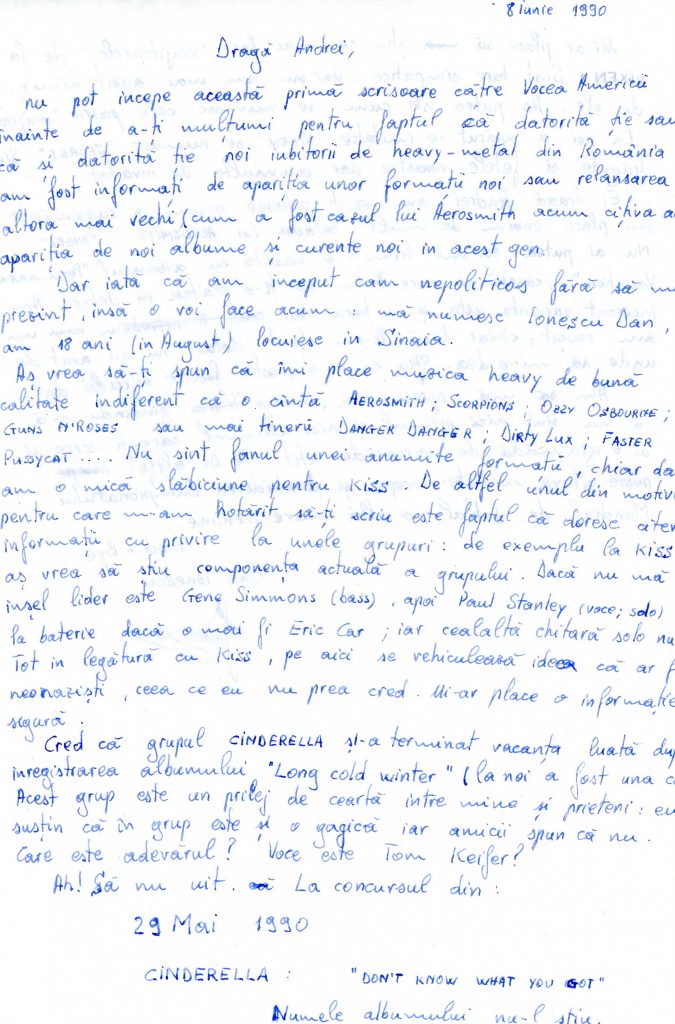 8 iunie 1990
Dragă Andrei,
nu pot incepe această primă scrisoare către Vocea Americii
inainte de a-ți mulțumi pentru faptul că datorită ție sau
că și datorită ție noi iubitorii de heavy-metal din România
am fost informați de apariția unor formații noi sau relansarea
altora mai vechi (cum a fost cazul lui Aerosmith acum cîțiva a
apariția de noi albume și curente noi in acest gen.
Dar iată că am inceput cam nepoliticos fără să m
prezint, insă o voi face acum: mă numesc Ionescu Dan,
am 18 ani (in August) locuiesc in Sinaia.
Aș vrea să-ți spun că îmi place muzica heavy de bună
calitate indiferent că o cîntă AEROSMITH; SCORPIONS; OZZY OSBOURNE;
GUNS N'ROSES sau mai tinerii DANGER DANGER; DIRTY LUX; FASTER
PUSSYCAT .... Nu sint fanul unei anumite formații, chiar da
am o mică slăbiciune pentru KISS. De altfel unul din motiv
pentru care m-am hotărît să-ți scriu este faptul că doresc citev
informații cu privire la unele grupuri: de exemplu la KISS
aș vrea să știu componența actuală a grupului. Dacă nu mă
inșel lider este Gene Simmons (bass), apoi Paul Stanley (voce; solo)
la baterie dacă o mai fi Eric Car; iar cealaltă chitară solo nu
Tot in legătură cu Kiss, pe aici se vehiculează ideea că ar f
neonaziști, ceea ce eu nu prea cred. Mi-ar place o informație
sigură.
Cred că grupul CINDERELLA și-a terminat vacanța luată dup
inregistrarea albumului "Long cold winter" (la noi a fost una c
Acest grup este un prilej de ceartă intre mine și prieteni: eu
susțin că în grup este și o gagică iar amicii spun că nu.
Care este adevărul? Voce este Tom Keifer?
Ah! Să nu uit. La concursul din:
29 Mai 1990
CINDERELLA: "DON'T KNOW WHAT YOU GOT"
Numele albumului nu-l știu.